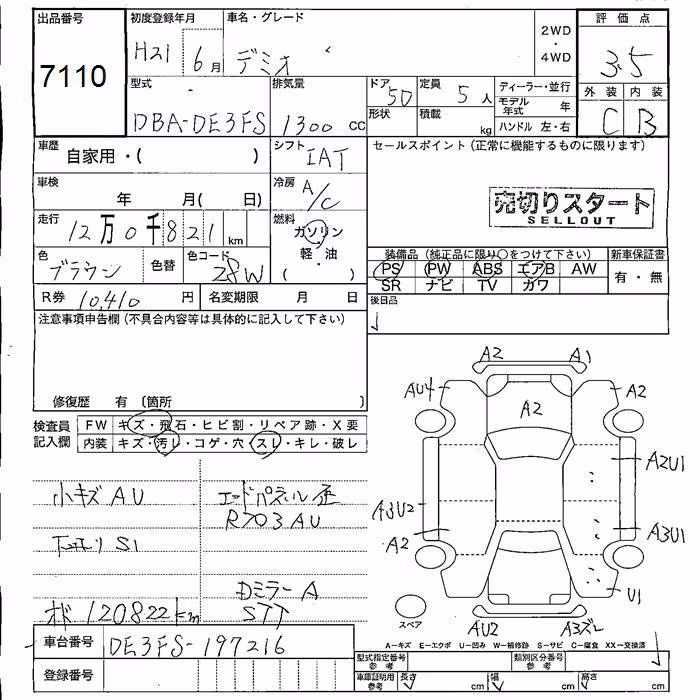 出品番号 初度登録年月 車名・グレード 2WD 評価点
7110 H21 6月 デミオ 4WD 3.5
型式 排気量 ドア 5D 定員 5人 ディーラー・並行 外装 内装
DBA-DE3FS 1300cc 形状 積載 kg モデル年式 年 C B
ハンドル 左・右
車歴 自家用・( ) シフト IAT セールスポイント (正常に機能するものに限ります)
車検 年 月( 日) 冷房 A/C 売切りスタート
SELLOUT
走行 12万0千821km 燃料 ガソリン
軽・油
( )
色 ブラウン 色替 色コード 28W 装備品 (純正品に限り○をつけて下さい) 新車保証書
PS PW ABS エアB AW 有・無
SR ナビ TV カワ
R券 10,410円 名変期限 月 日 後日品
注意事項申告欄 (不具合内容等は具体的に記入して下さい)
修復歴 有 (箇所 )
検査員 FW キズ・飛石・ヒビ割・リペア跡・X要
記入欄 内装 キズ・汚レ・コゲ・穴・スレ・キレ・破レ
A2 A1
AU4 A2 A2
A2U1
A3U2
A2 A3U1
U1
スペア AU2 A3ズレ
小キズ AU
R703 AU
S1
Dミラー A
120822km
車台番号 DE3FS-197216
登録番号
A-キズ E-エクボ U-凹み W-補修跡 S-サビ C-腐食 XX-交換済
型式指定番号 参考 類別区分番号 参考
車庫証明用 参考 長さ cm 幅 cm 高さ cm